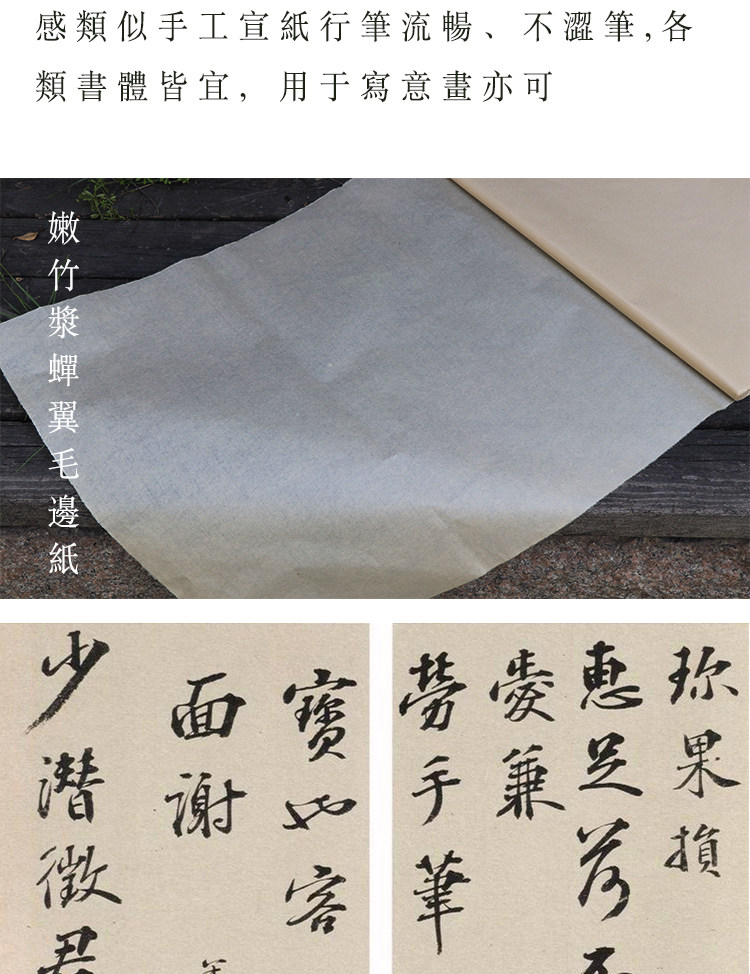 感類似手工宣紙行筆流暢、不澀筆,各
類書體皆宜,用于寫意畫亦可
嫩竹漿蟬翼毛邊紙
珎果損
惠足荷
愛兼
勞手筆
寶也容
面謝
少潛徵君